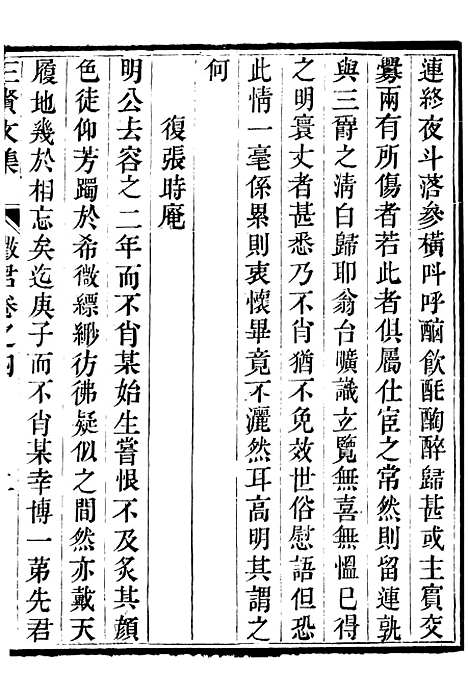 連終夜斗落參橫叫呼酗飲酕醄醉歸甚或主賓交
釁兩有所傷者若此者俱屬仕宦之常然則留連孰
與三爵之淸白歸耶翁台曠識立覽無喜無慍巳得
之明寰丈者甚悉乃不肖猶不免效世俗慰語但恐
此情一毫係累則衷懷畢竟不灑然耳高明其謂之
何
復張時庵
明公去容之二年而不肖某始生嘗恨不及炙其顏
色徒仰芳躅於希微縹緲彷彿疑似之間然亦戴天
履地幾於相忘矣迄庚子而不肖某幸博一第先君
三賢文集 徵君卷之四